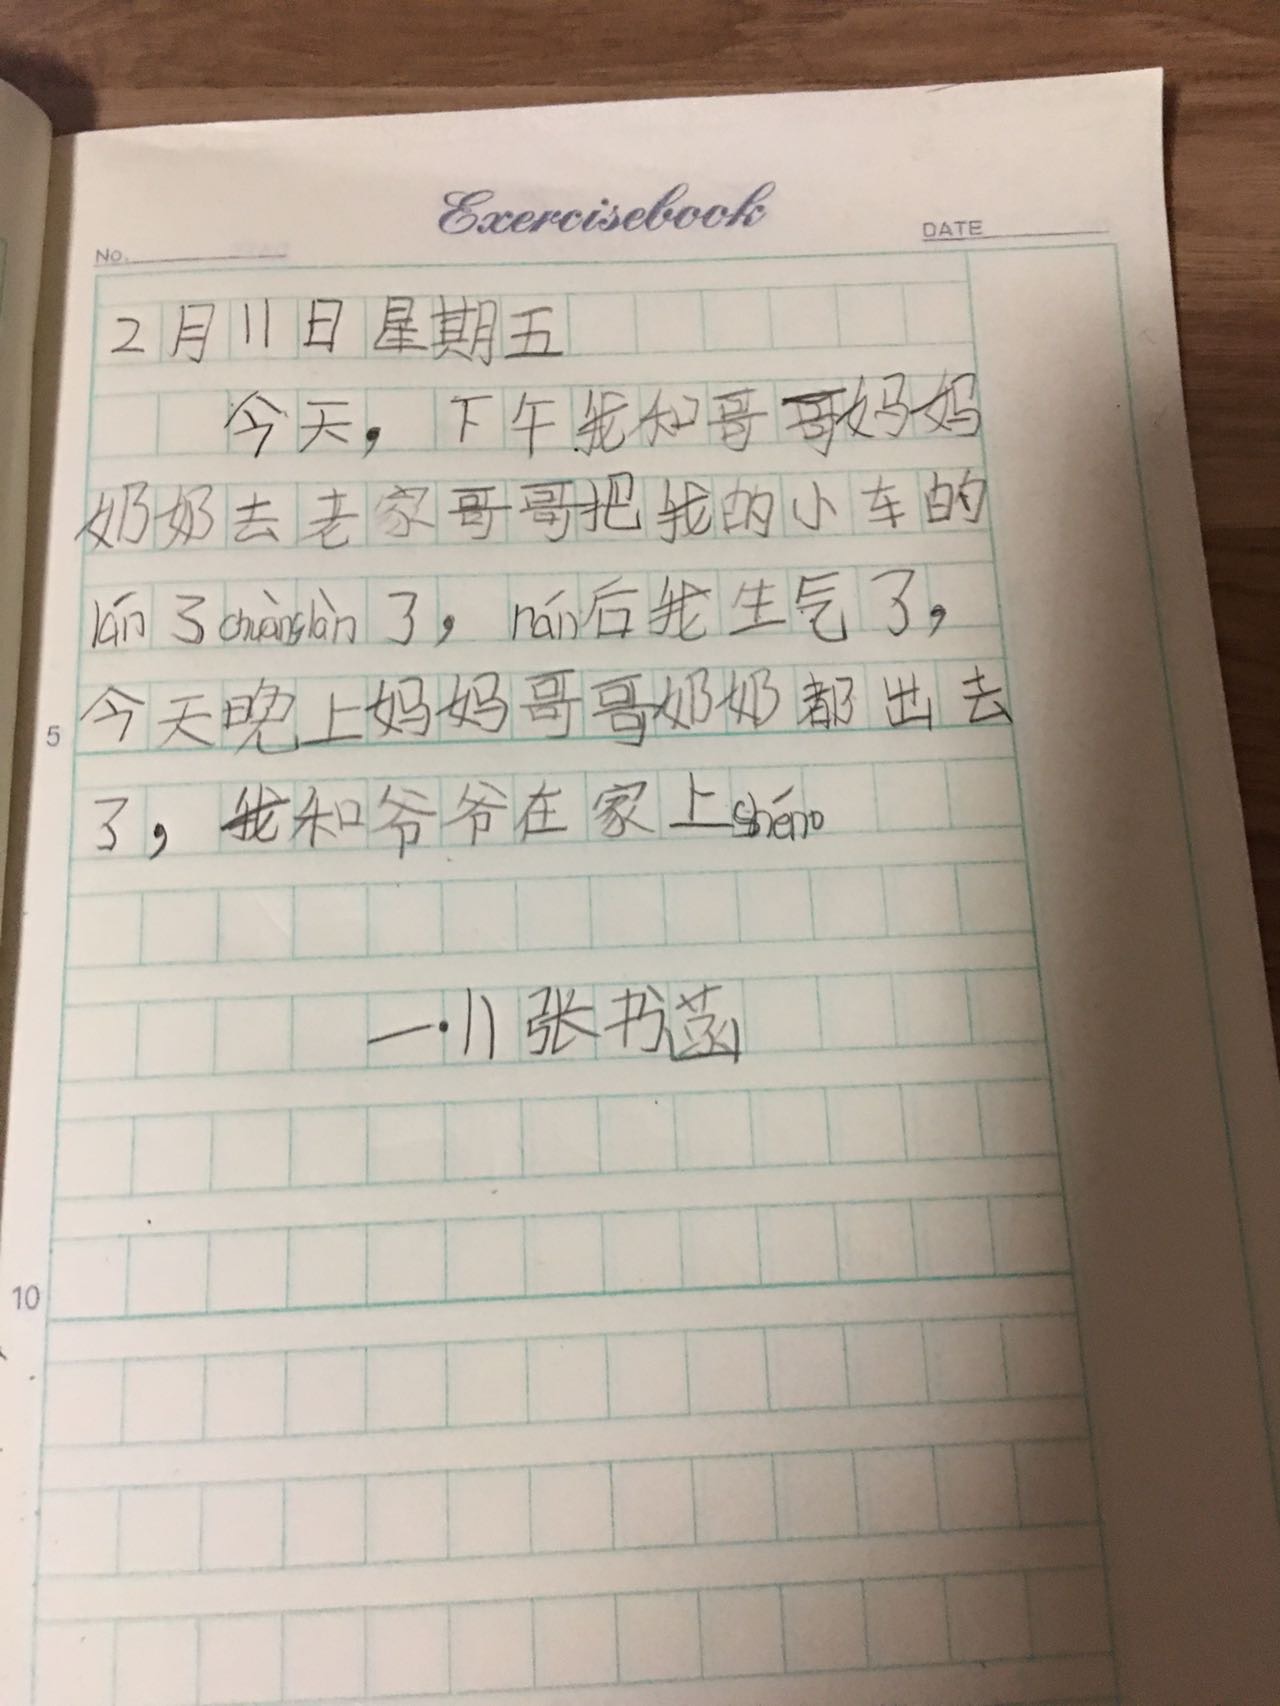 Exercisebook
No. DATE
2月11日星期五
今天，下午我和哥哥妈妈
奶奶去老家哥哥把我的小车的
lán了chuànglàn了，nán后我生气了，
5 今天晚上妈妈哥哥奶奶都出去
了，我和爷爷在家上shéno
一·11张书菡
10